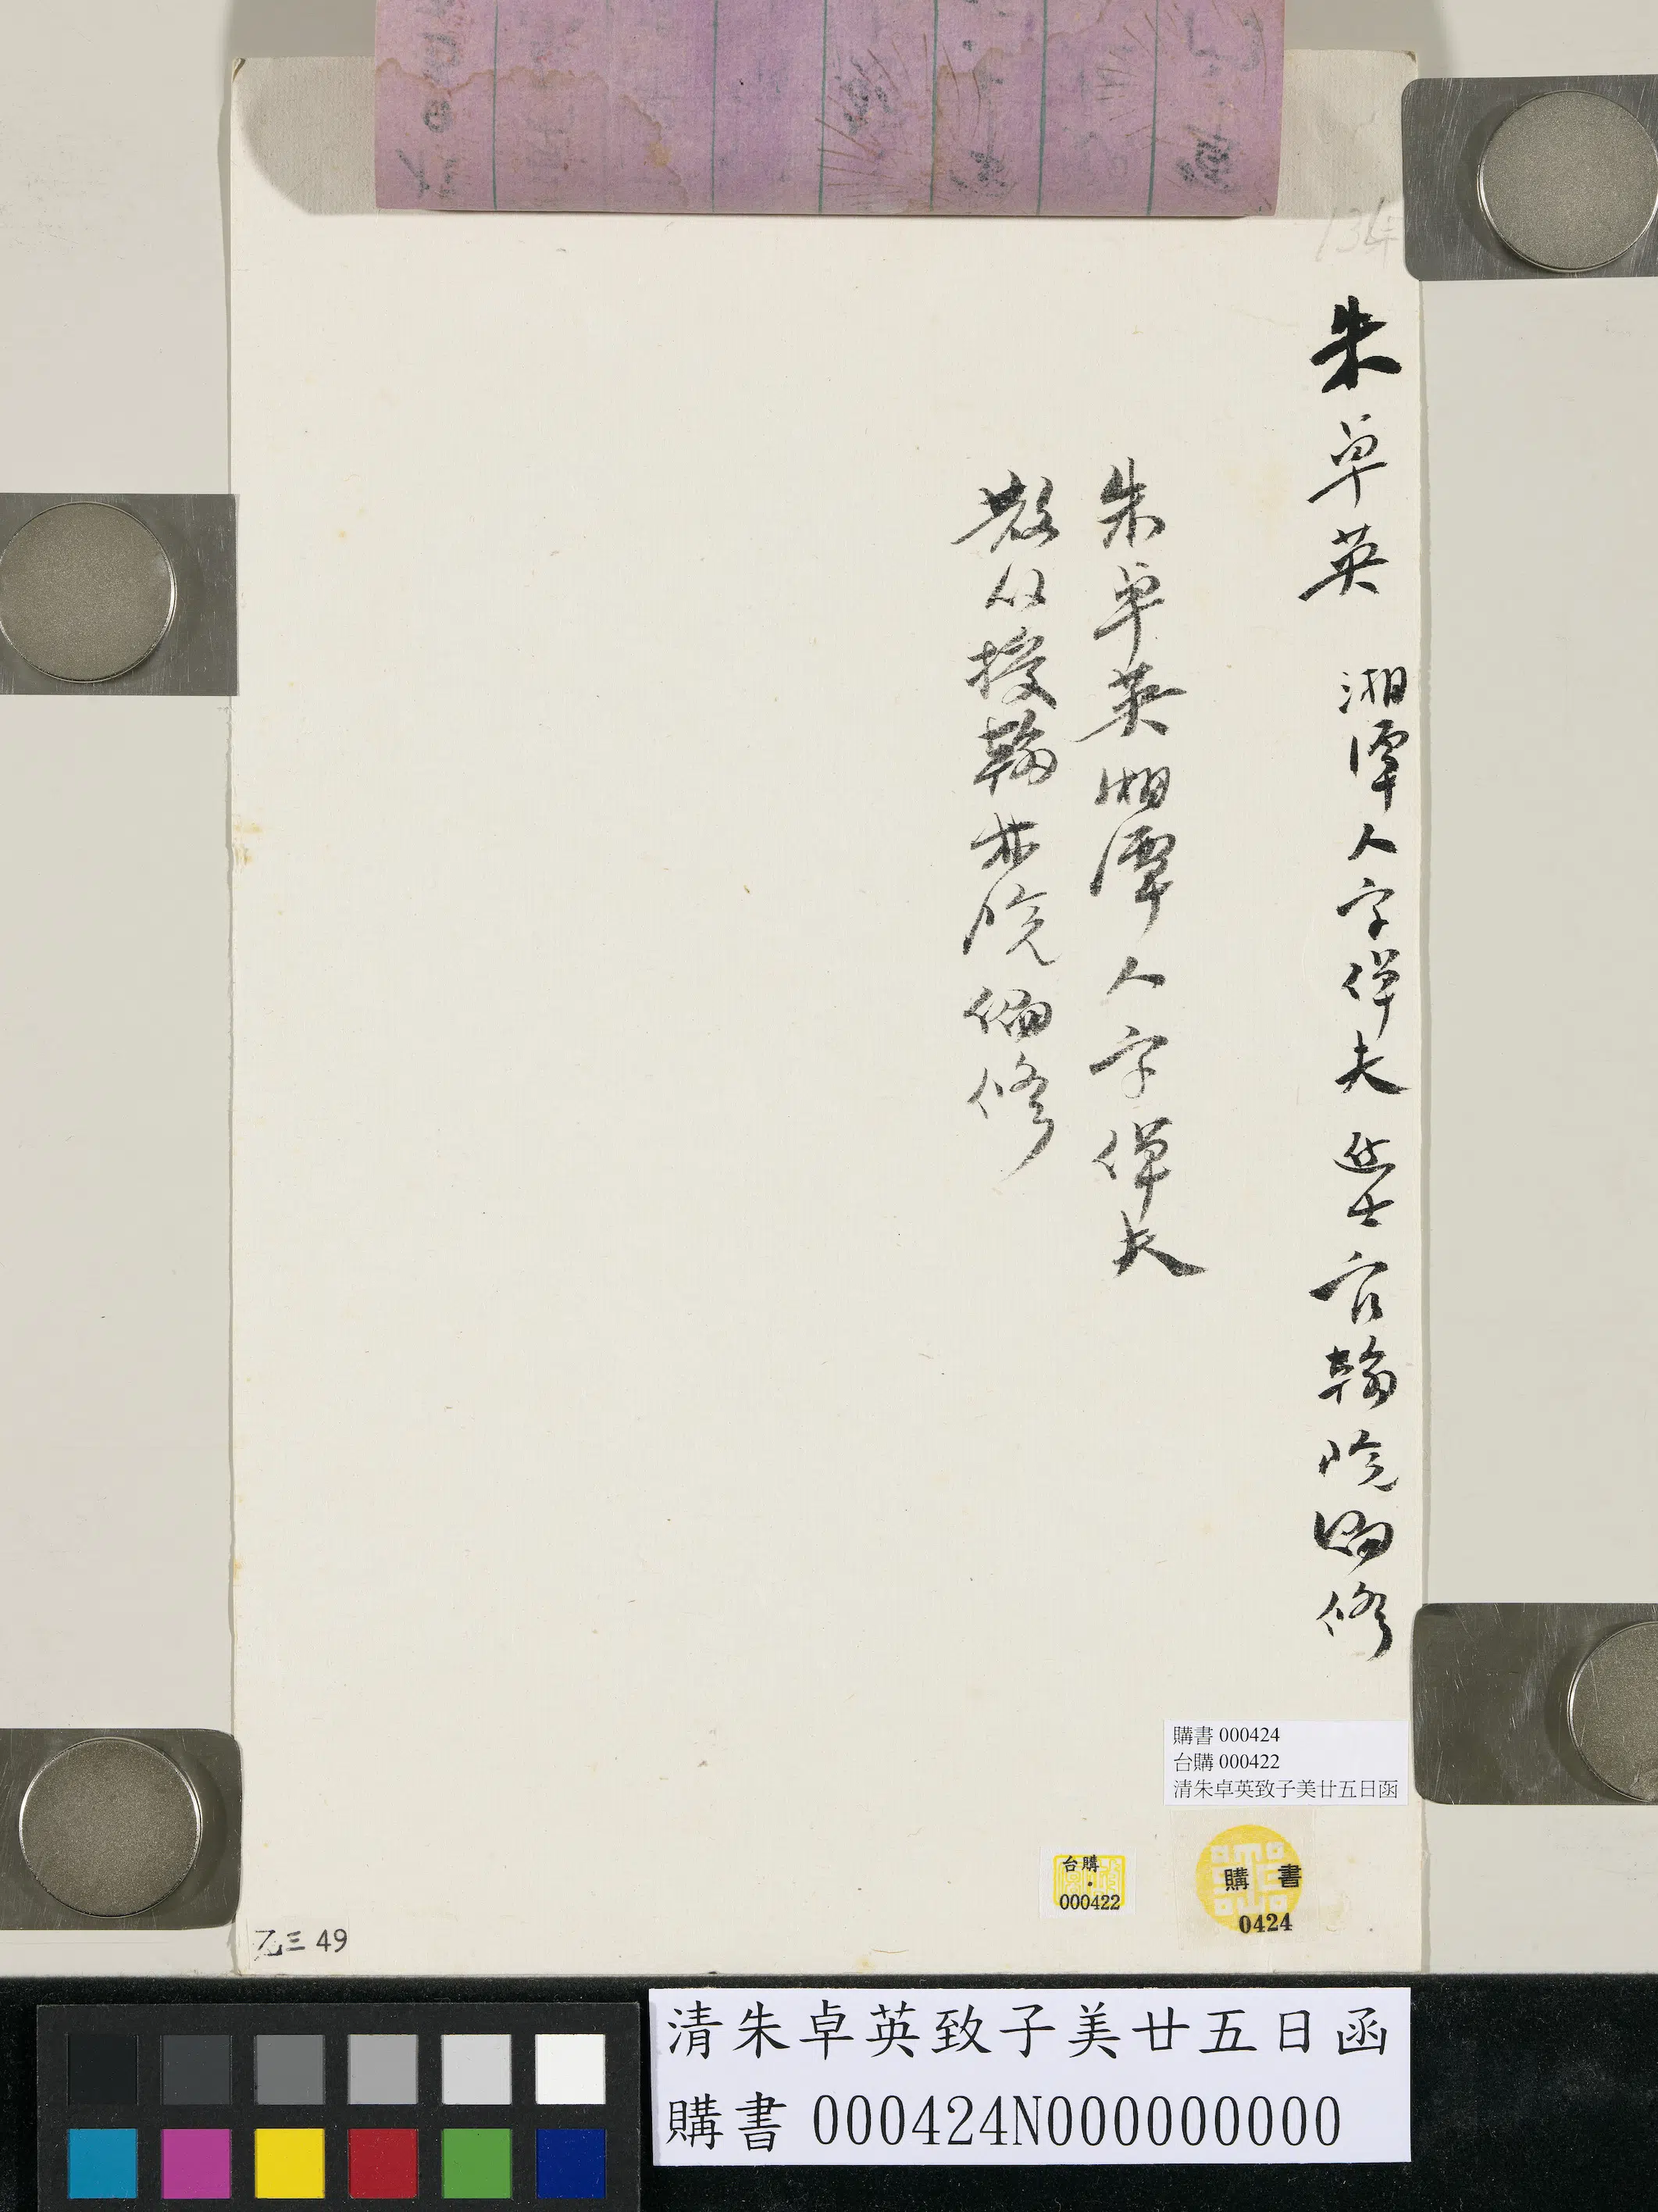 朱卓英 湘潭人字倬夫 進士官翰院編修
朱卓英湘潭人字倬夫
散館授翰林院編修
購書 000424
台購 000422
清朱卓英致子美廿五日函
台購
000422
購書
0424
乙三 49
清朱卓英致子美廿五日函
購書 000424N000000000